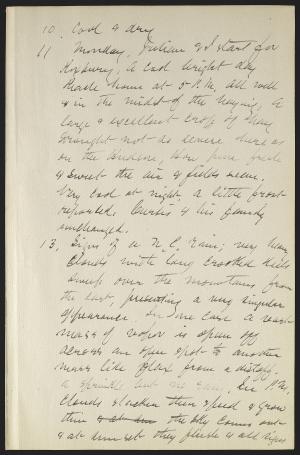 10. Cool & dry
11 Monday, Julian & I start for
Roxbury, a cool bright day
Reach home at 5 P.M. all well
& in the midst of the haying, a
large & excellent crop of hay
Drought not so severe here as
on the Hudson, how pure fresh
& sweet the air & fields seem.
Very cool at night a little frost
reported. Curtis & his family
unchanged.
13. Signs of a N.E. rain; very heavy
clouds with long crooked
sweep over the mountains, from
the east, presenting a very singular
appearance. In one case a vast
mass of vapor is spun off
across an open spot to another
mass like flax from a distaff.
a sprinkle but no rain. In P.M.
clouds slacken their speed & grow
thin & at sun the sky comes out
& at sunset they flush & all signs